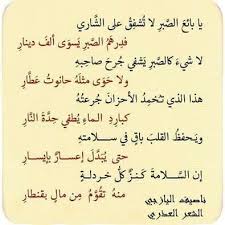 يا بائعَ الصّبرِ لا تُشفِقْ على الشّاري
فدِرهَمُ الصّبرِ يَسوَى ألفَ دينارِ
لا شيءَ كالصّبرِ يَشفي جُرحَ صاحبِهِ
ولا حَوَى مثلَهُ حانوتُ عطّارِ
هذا الذي تُخمِدُ الأحزانَ جُرعتُهُ
كباردِ الماءِ يُطفي حِدّةَ النّارِ
ويَحفظُ القلبَ باقٍ في سلامتِهِ
حتى يُبَدَّلَ إعسارٌ بإيسارِ
إن السّلامةَ كَنزٌ كلُّ خردلةٍ
منهُ تقوَّمُ مِن مالٍ بقنطارِ
ناصيف اليازجي
الشعر العذري